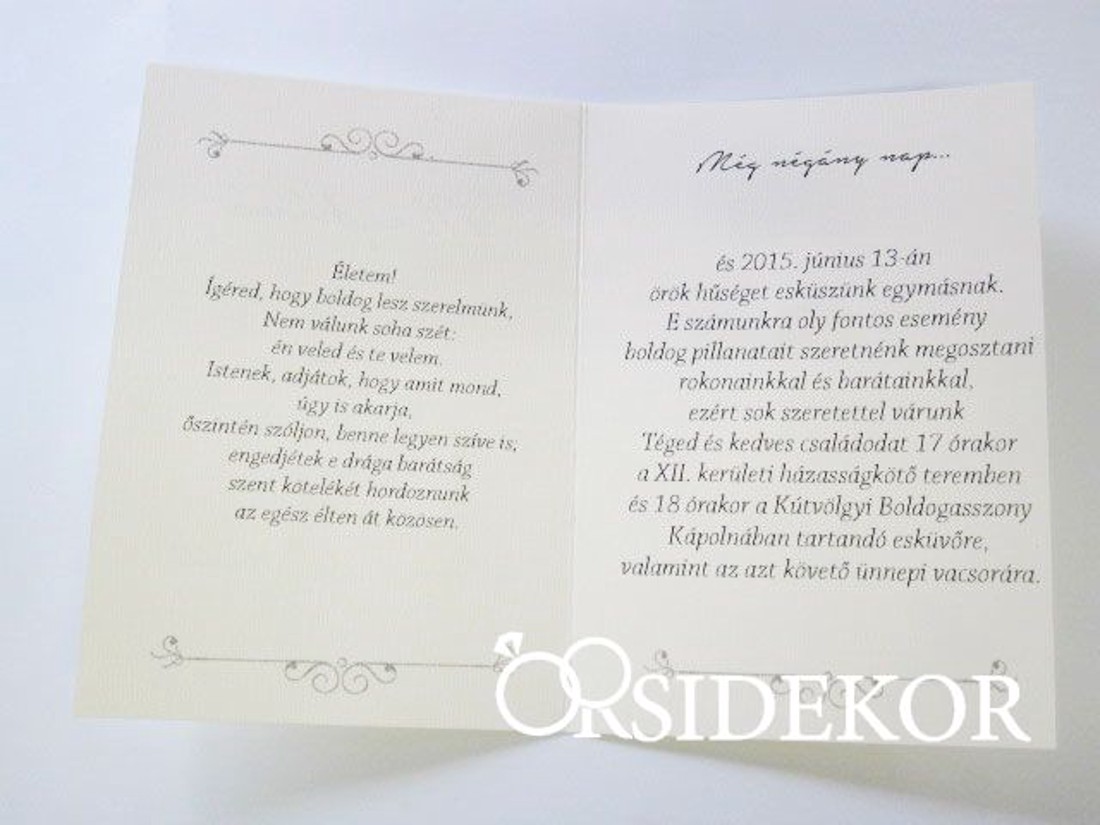 Életem!
Ígéred, hogy boldog lesz szerelmünk,
Nem válunk soha szét:
én veled és te velem.
Istenek, adjátok, hogy amit mond,
úgy is akarja,
őszintén szóljon, benne legyen szíve is,
engedjétek e drága barátság
szent kötelékét hordoznunk
az egész élten át közösen.
Még négány nap...
és 2015. június 13-án
örök hűséget esküszünk egymásnak.
E számunkra oly fontos esemény
boldog pillanatait szeretnénk megosztani
rokonainkkal és barátainkkal,
ezért sok szeretettel várunk
Téged és kedves családodat 17 órakor
a XII. kerületi házasságkötő teremben
és 18 órakor a Kútvölgyi Boldogasszony
Kápolnában tartandó esküvőre,
valamint az azt követő ünnepi vacsorára.
ORSIDEKOR